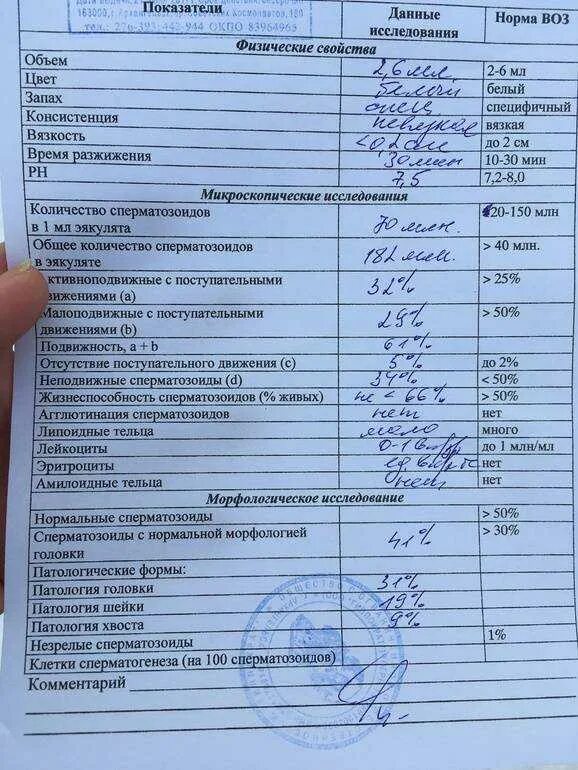 Показатели Данные исследования Норма ВОЗ
163000, г. Архангельск, пр. Советских Космонавтов, 180
ОКПО 83964965
Физические свойства
Объем 2,6 мл 2-6 мл
Цвет белый
Запах спец специфичный
Консистенция невязкая вязкая
Вязкость <0,2 см до 2 см
Время разжижения 30 мин 10-30 мин
РН 7,5 7,2-8,0
Микроскопические исследования
Количество сперматозоидов
в 1 мл эякулята 70 млн. 20-150 млн
Общее количество сперматозоидов
в эякуляте 182 млн. > 40 млн.
активноподвижные с поступательными
движениями (a) 32% > 25%
Малоподвижные с поступательными
движениями (b) 29% > 50%
Подвижность, a + b 61%
Отсутствие поступательного движения (c) 5% до 2%
Неподвижные сперматозоиды (d) 34% < 50%
Жизнеспособность сперматозоидов (% живых) не < 66% > 50%
Агглютинация сперматозоидов нет нет
Липоидные тельца мало много
Лейкоциты 0-1 до 1 млн/мл
Эритроциты ед нет
Амилоидные тельца нет нет
Морфологическое исследование
Нормальные сперматозоиды > 50%
Сперматозоиды с нормальной морфологией
головки 41% > 30%
Патологические формы:
Патология головки 31%
Патология шейки 19%
Патология хвоста 9%
Незрелые сперматозоиды 1%
Клетки сперматогенеза (на 100 сперматозоидов)
Комментарий